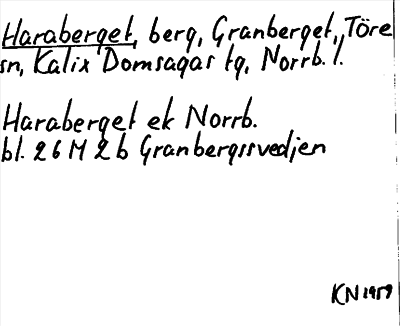 Haraberget, berg, Granberget, Töre
sn, Kalix Domsagas tg, Norrb. l.
Haraberget ek Norrb.
bl. 26 M 2 b Granbergssvedjen
KN 1959